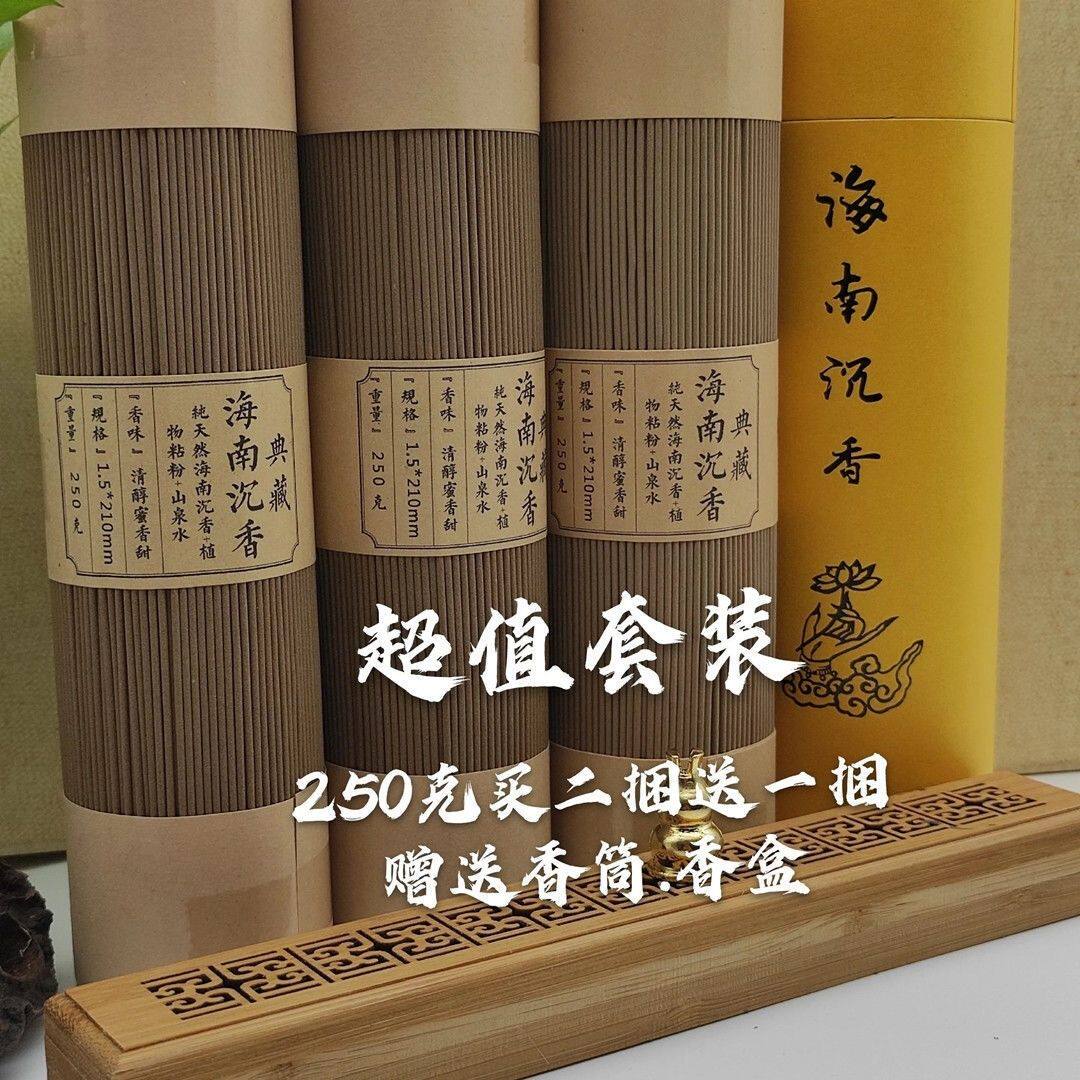 典藏
海南沉香
純天然海南沉香+植
物粘粉+山泉水
『香味』清醇蜜香甜
『規格』1.5*210mm
『重量』250克
典藏
海南沉香
純天然海南沉香+植
物粘粉+山泉水
『香味』清醇蜜香甜
『規格』1.5*210mm
『重量』250克
典藏
海南沉香
純天然海南沉香+植
物粘粉+山泉水
『香味』清醇蜜香甜
『規格』1.5*210mm
『重量』250克
海南沉香
超值套装
250克买二捆送一捆
赠送香筒.香盒